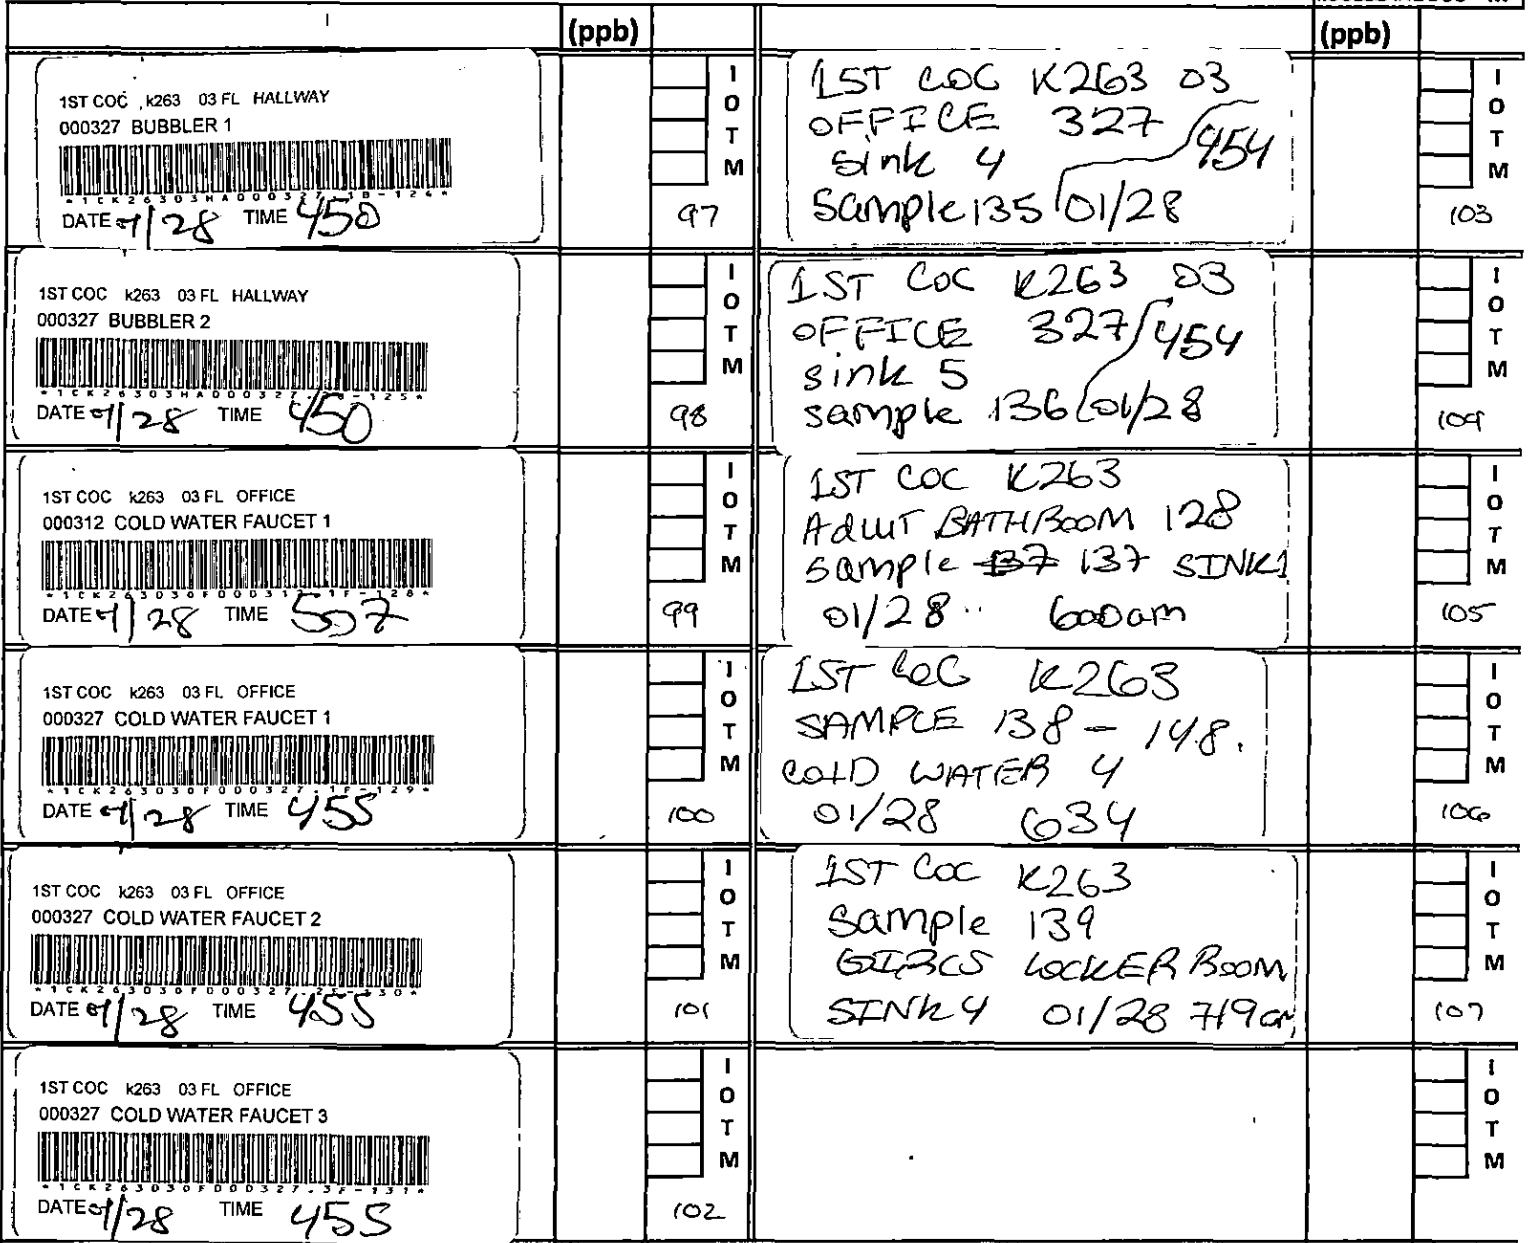 (ppb)
(ppb)
1ST COC k263 03 FL HALLWAY
000327 BUBBLER 1
*1CK26303HA000327.1B-124*
DATE 01/28 TIME 450
I
O
T
M
97
1ST COC k263 03 FL HALLWAY
000327 BUBBLER 2
DATE 01/28 TIME 450
I
O
T
M
98
1ST COC k263 03 FL OFFICE
000312 COLD WATER FAUCET 1
*1CK26303OF000312.1F-128*
DATE 01/28 TIME 507
I
O
T
M
99
1ST COC k263 03 FL OFFICE
000327 COLD WATER FAUCET 1
*1CK26303OF000327.1F-129*
DATE 01/28 TIME 455
I
O
T
M
100
1ST COC k263 03 FL OFFICE
000327 COLD WATER FAUCET 2
*1CK26303OF000327.2F-130*
DATE 01/28 TIME 455
I
O
T
M
101
1ST COC k263 03 FL OFFICE
000327 COLD WATER FAUCET 3
*1CK26303OF000327.3F-131*
DATE 01/28 TIME 455
I
O
T
M
102
1ST COC K263 03
OFFICE 327
sink 4 454
Sample 135 01/28
I
O
T
M
103
1ST COC K263 03
OFFICE 327 454
sink 5
sample 136 01/28
I
O
T
M
104
1ST COC K263
AdULT BATHROOM 128
sample 137 137 SINK1
01/28 600am
I
O
T
M
105
1ST COC K263
SAMPLE 138 - 148.
COLD WATER 4
01/28 634
I
O
T
M
106
1ST COC K263
Sample 139
GIRLS LOCKER ROOM
SINK 4 01/28 719am
I
O
T
M
107
I
O
T
M